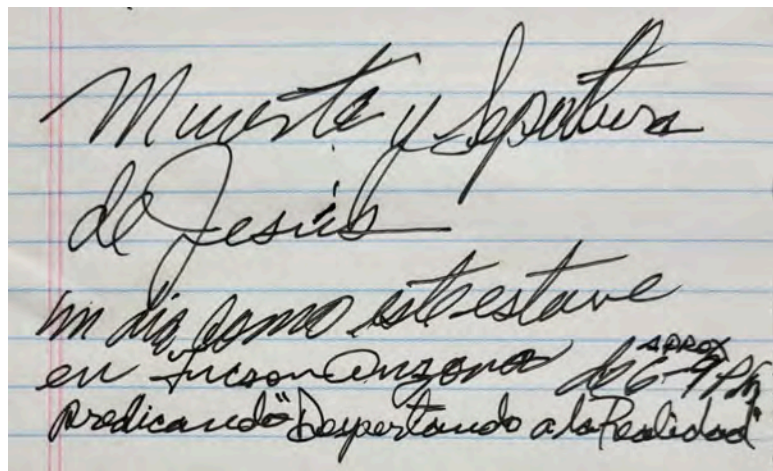 Muerte y Sepultura
de Jesús
un dia como este estuve
en Tucson Arizona de 6-9 PM APROX
predicando "Despertando a la Realidad"